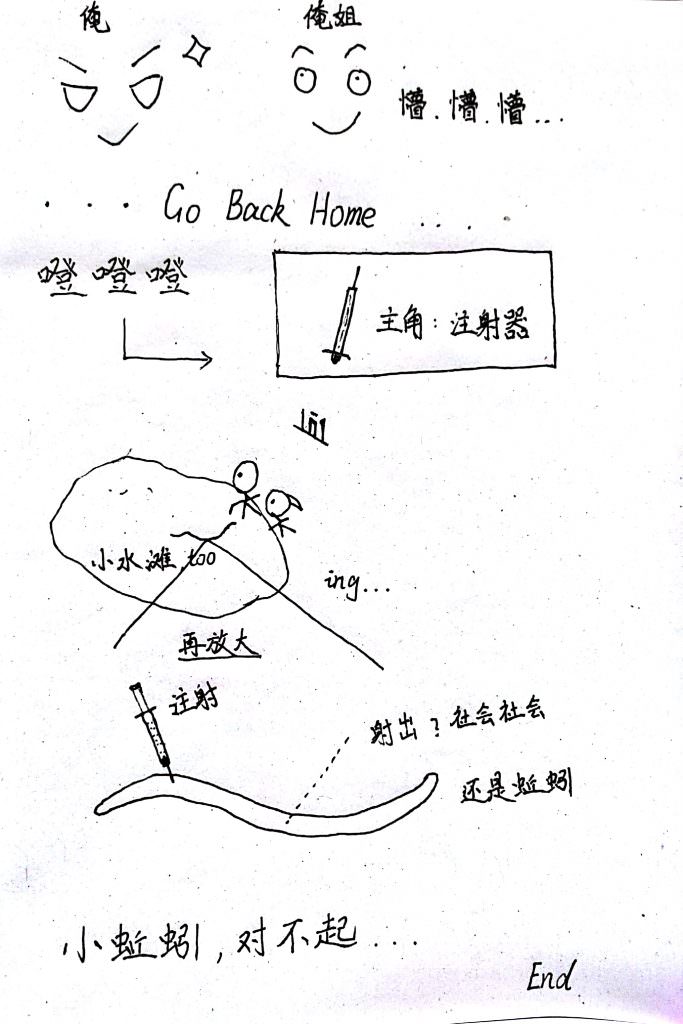 俺
俺姐
懵.懵.懵...
... Go Back Home ....
噔噔噔
主角:注射器
小水滩,too
ing...
再放大
注射
射出?社会社会
还是蚯蚓
小蚯蚓,对不起...
End